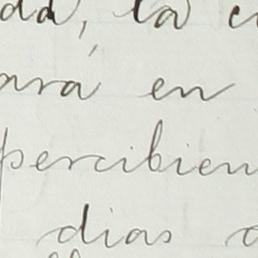 da, la
ará en
percibien
dias